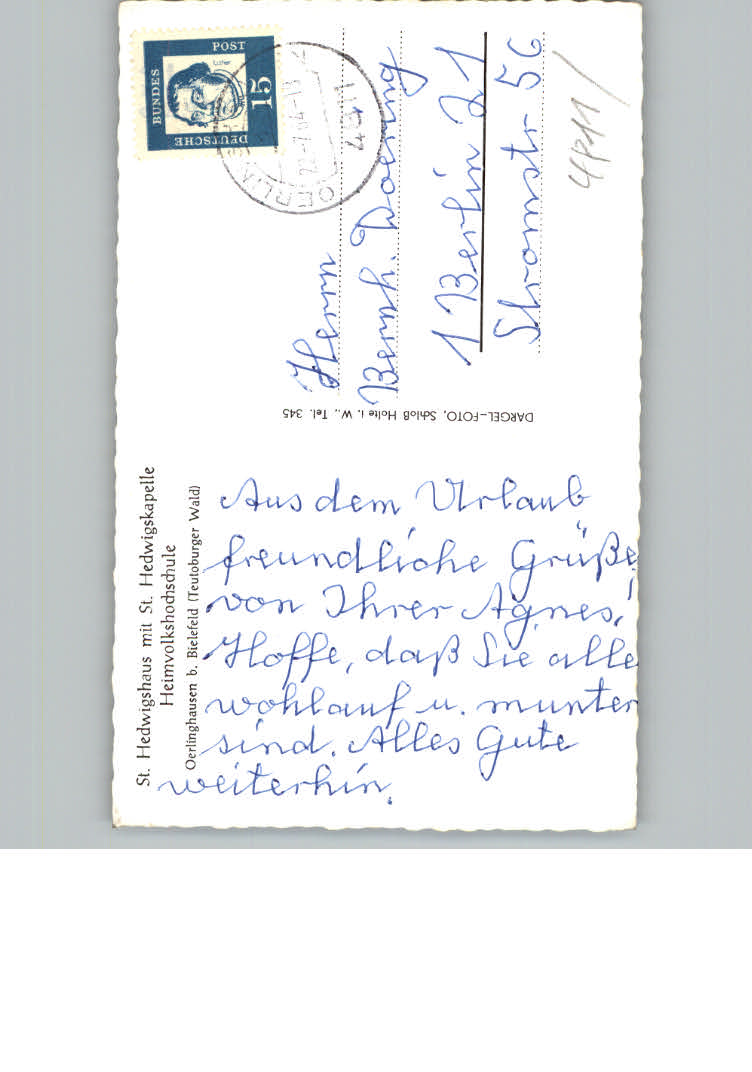 St. Hedwigshaus mit St. Hedwigskapelle
Heimvolkshochschule
Oerlinghausen b. Bielefeld (Teutoburger Wald)
Aus dem Urlaub
freundliche Grüße
von Ihrer Agnes!
Hoffe, daß Sie alle
wohlauf u. munter
sind. Alles Gute
weiterhin.
DARGEL-FOTO, Schloß Holte i. W., Tel. 345
DEUTSCHE
BUNDES
POST
15
Luther
4811
Herrn
Bernh. Doering
1 Berlin 21
Stromstr 56
4811